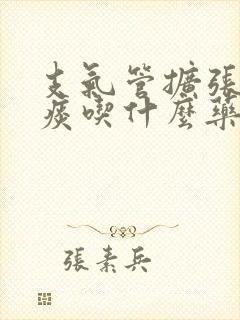 支氣管擴張
痰喫什麼藥
張素兵